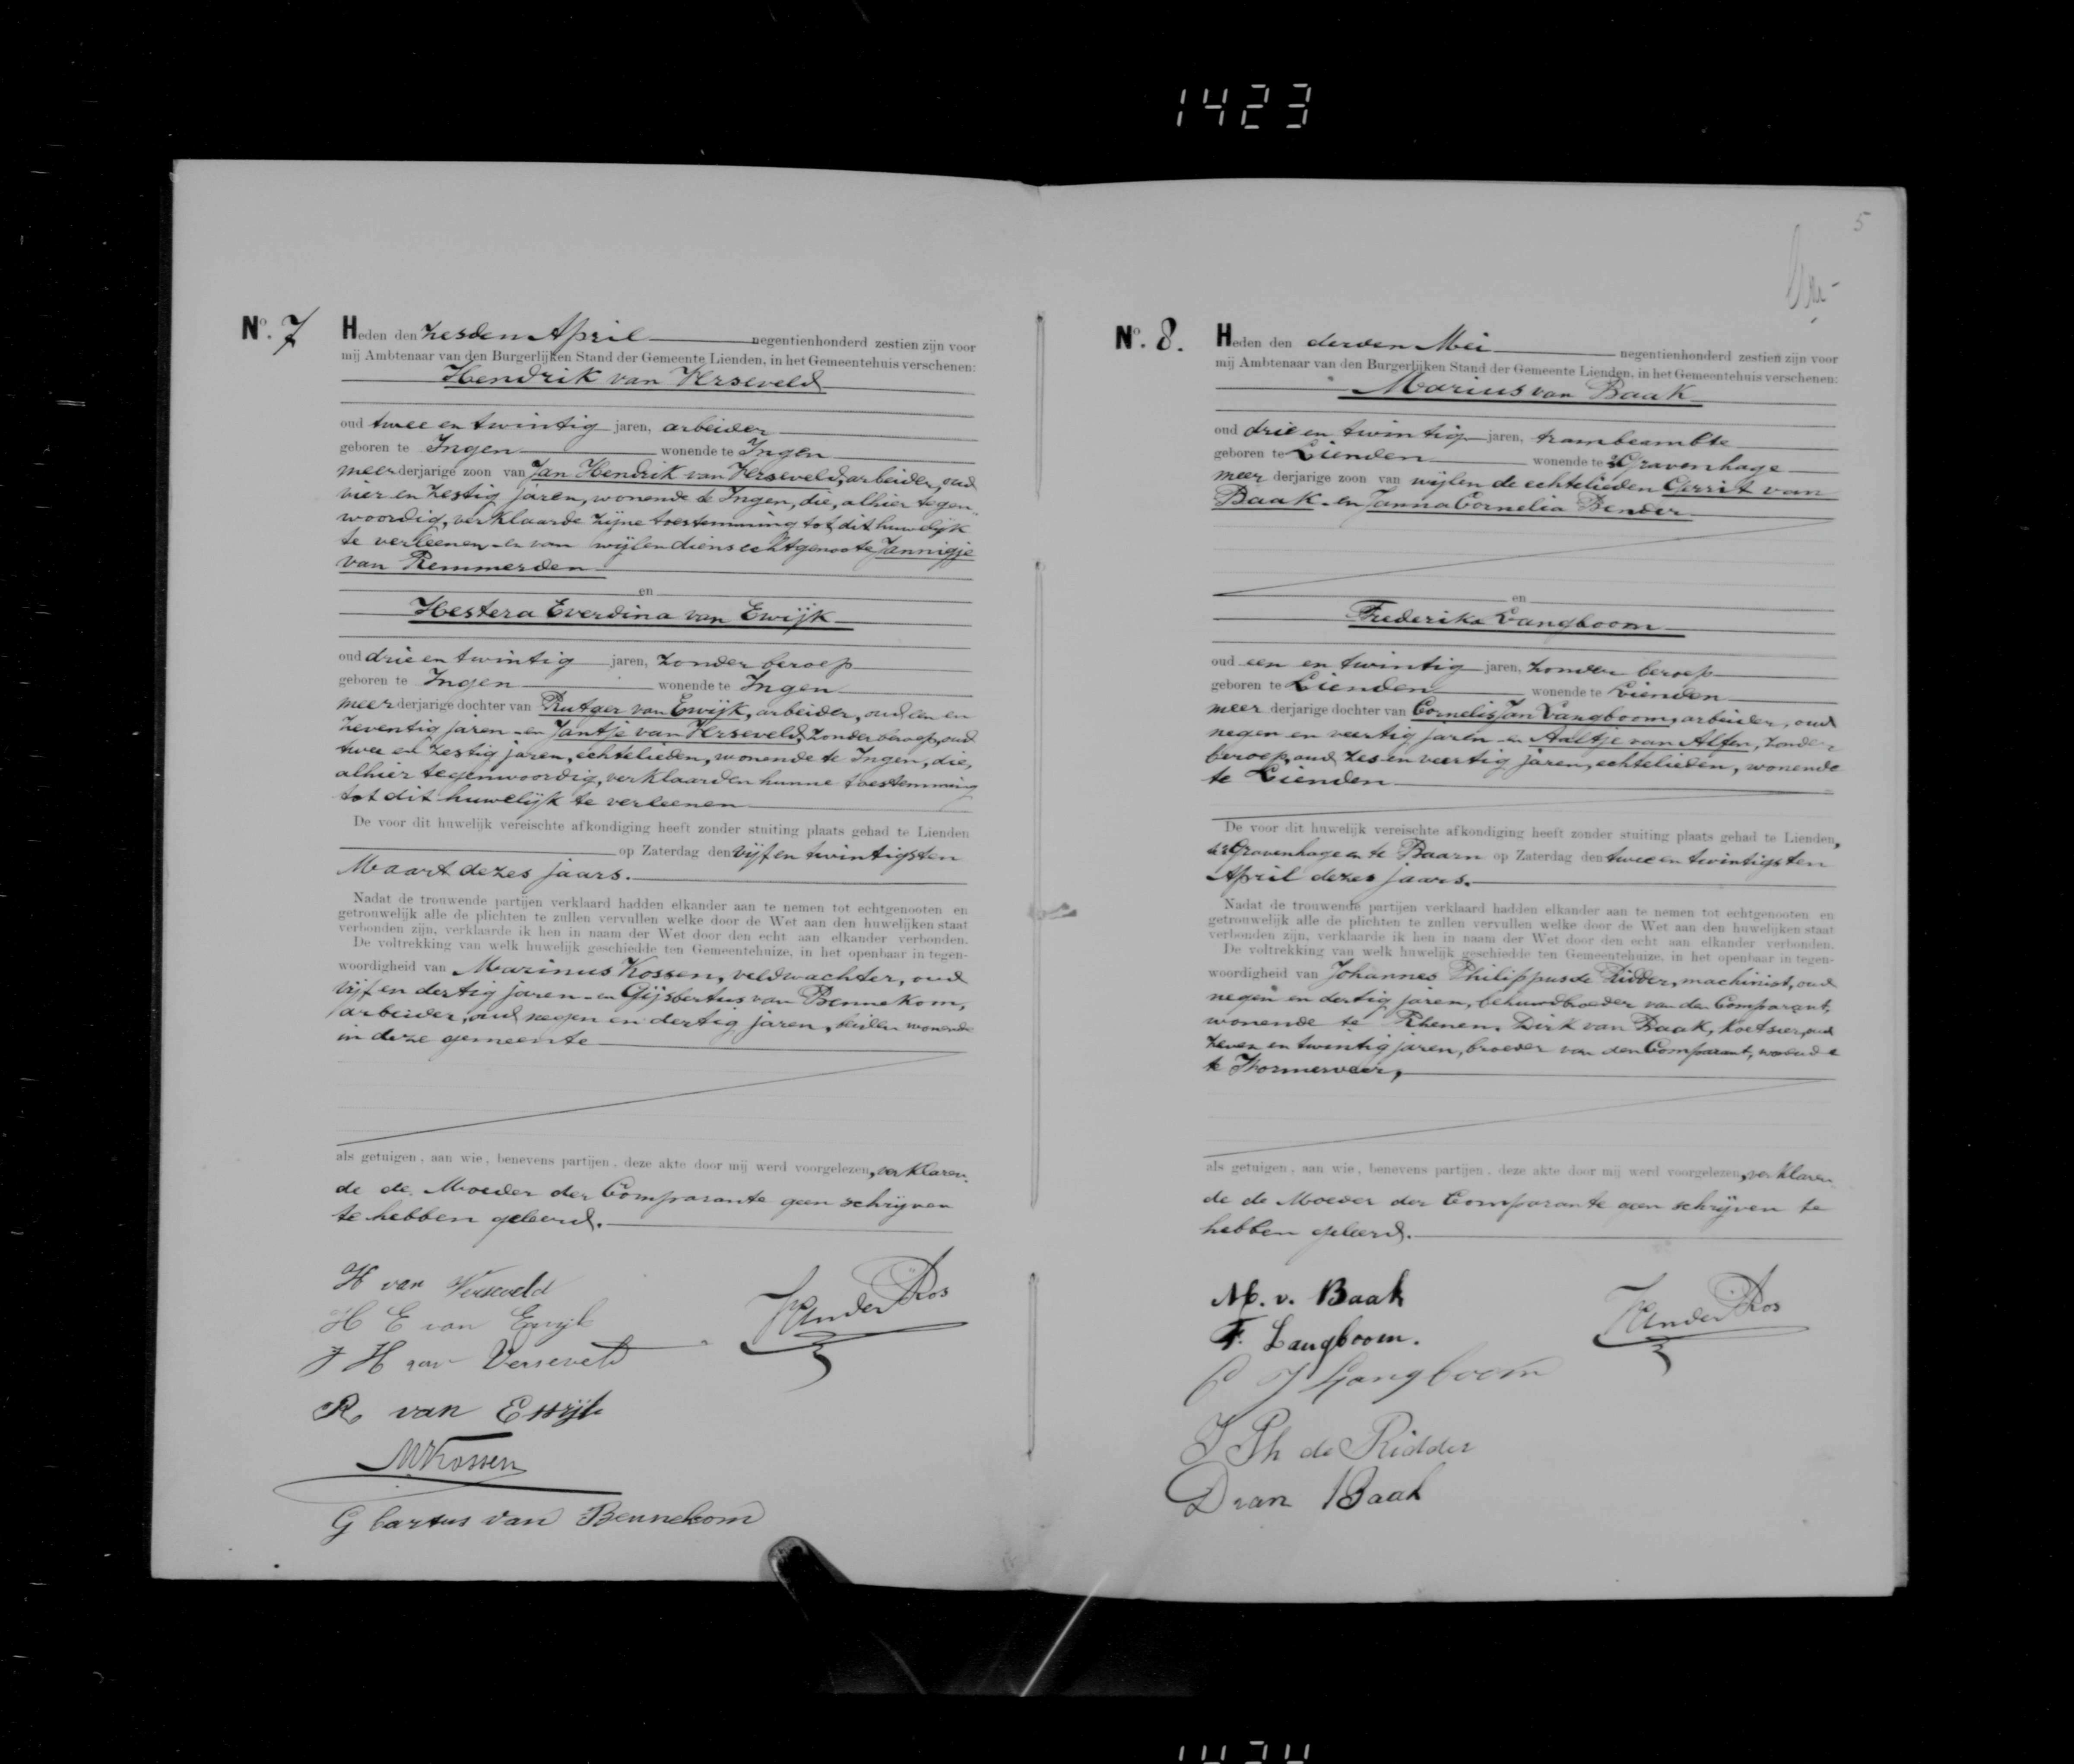 1423
5
No. 7
Heden den zesden April negentienhonderd zestien zijn voor
mij Ambtenaar van den Burgerlijken Stand der Gemeente Lienden, in het Gemeentehuis verschenen:
Hendrik van Verseveld
oud twee en twintig jaren, arbeider
geboren te Ingen wonende te Ingen
meerderjarige zoon van Jan Hendrik van Verseveld, arbeider, oud
vier en zestig jaren, wonende te Ingen, die, alhier tegen-
woordig, verklaarde zijne toestemming tot dit huwelijk
te verleenen en van wijlen diens echtgenoote Jannigje
van Remmerden
en
Hestera Everdina van Ewijk
oud drie en twintig jaren, zonder beroep
geboren te Ingen wonende te Ingen
meerderjarige dochter van Rutger van Ewijk, arbeider, oud een en
zeventig jaren en Jantje van Verseveld, zonder beroep, oud
twee en zestig jaren, echtelieden, wonende te Ingen, die,
alhier tegenwoordig, verklaarden hunne toestemming
tot dit huwelijk te verleenen
De voor dit huwelijk vereischte afkondiging heeft zonder stuiting plaats gehad te Lienden
op Zaterdag den vijf en twintigsten
Maart dezes jaars.
Nadat de trouwende partijen verklaard hadden elkander aan te nemen tot echtgenooten en
getrouwelijk alle de plichten te zullen vervullen welke door de Wet aan den huwelijken staat
verbonden zijn, verklaarde ik hen in naam der Wet door den echt aan elkander verbonden.
De voltrekking van welk huwelijk geschiedde ten Gemeentehuize, in het openbaar in tegen-
woordigheid van Marinus Kossen, veldwachter, oud
vijf en dertig jaren en Gijsbertus van Bennekom,
arbeider, oud negen en dertig jaren, beiden wonende
in deze gemeente
als getuigen, aan wie, benevens partijen, deze akte door mij werd voorgelezen, verklaren-
de de Moeder der Comparante geen schrijven
te hebben geleerd.
H van Verseveld
H E van Ewijk
J H van Verseveld
R. van Ewijk
M Kossen
G bartus van Bennekom
VanderRos
No. 8.
Heden den derden Mei negentienhonderd zestien zijn voor
mij Ambtenaar van den Burgerlijken Stand der Gemeente Lienden, in het Gemeentehuis verschenen:
Marius van Baak
oud drie en twintig jaren, trambeambte
geboren te Lienden wonende te 's Gravenhage
meer derjarige zoon van wijlen de echtelieden Gerrit van
Baak en Janna Cornelia Bender
en
Frederika Langboom
oud een en twintig jaren, zonder beroep
geboren te Lienden wonende te Lienden
meer derjarige dochter van Cornelis Jan Langboom, arbeider, oud
negen en veertig jaren en Aaltje van Alfen, zonder
beroep, oud zes en veertig jaren, echtelieden, wonende
te Lienden
De voor dit huwelijk vereischte afkondiging heeft zonder stuiting plaats gehad te Lienden,
te 's Gravenhage en te Baarn op Zaterdag den twee en twintigsten
April dezes jaars.
Nadat de trouwende partijen verklaard hadden elkander aan te nemen tot echtgenooten en
getrouwelijk alle de plichten te zullen vervullen welke door de Wet aan den huwelijken staat
verbonden zijn, verklaarde ik hen in naam der Wet door den echt aan elkander verbonden.
De voltrekking van welk huwelijk geschiedde ten Gemeentehuize, in het openbaar in tegen-
woordigheid van Johannes Philippus de Ridder, machinist, oud
negen en dertig jaren, behuwdbroeder van den Comparant,
wonende te Rhenen, Dirk van Baak, koetsier, oud
zeven en twintig jaren, broeder van den Comparant, wonende
te Wormerveer,
als getuigen, aan wie, benevens partijen, deze akte door mij werd voorgelezen, verklaren-
de de Moeder der Comparante geen schrijven te
hebben geleerd.
M. v. Baak
F. Langboom.
C J Langboom
J Ph de Ridder
D van Baak
VanderRos
1424